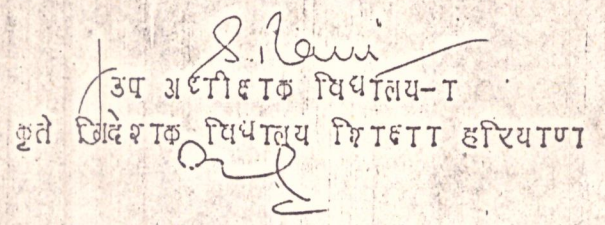 S. Rani
उप अधीक्षक विधालय-1
कृते निदेशक विधालय शिक्षा हरियाणा